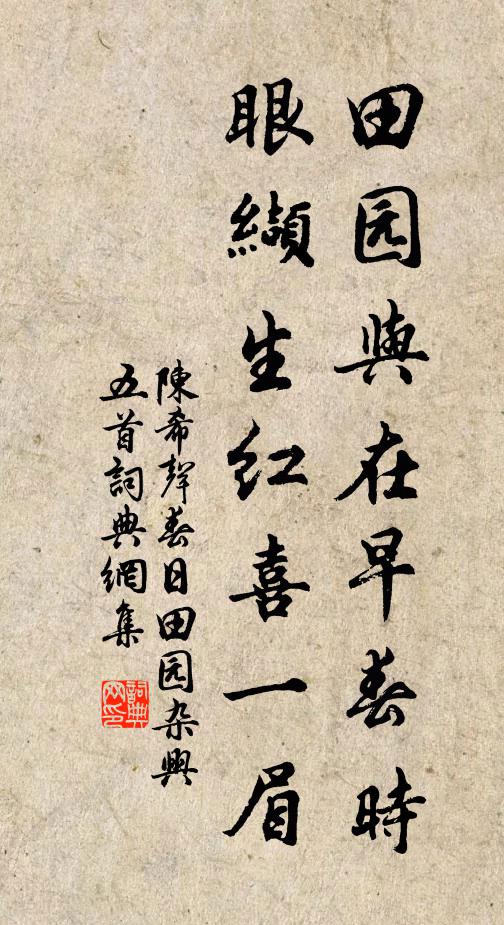 田园與在早春時
眼纈生红喜一眉
陳希聲春日田园杂興
五首詞典網集
詞典网印